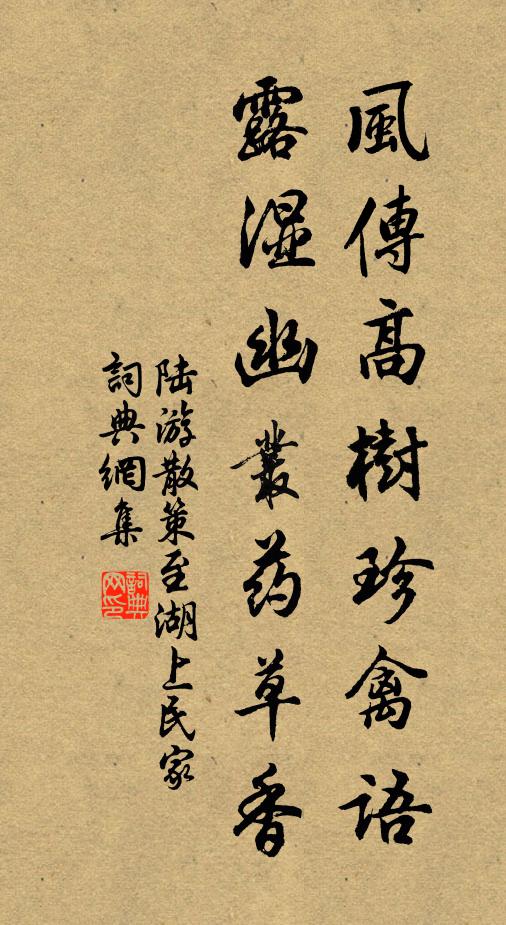 風傳高樹珍禽語
露湿幽叢药草香
陆游散策至湖上民家
詞典網集
詞典網印